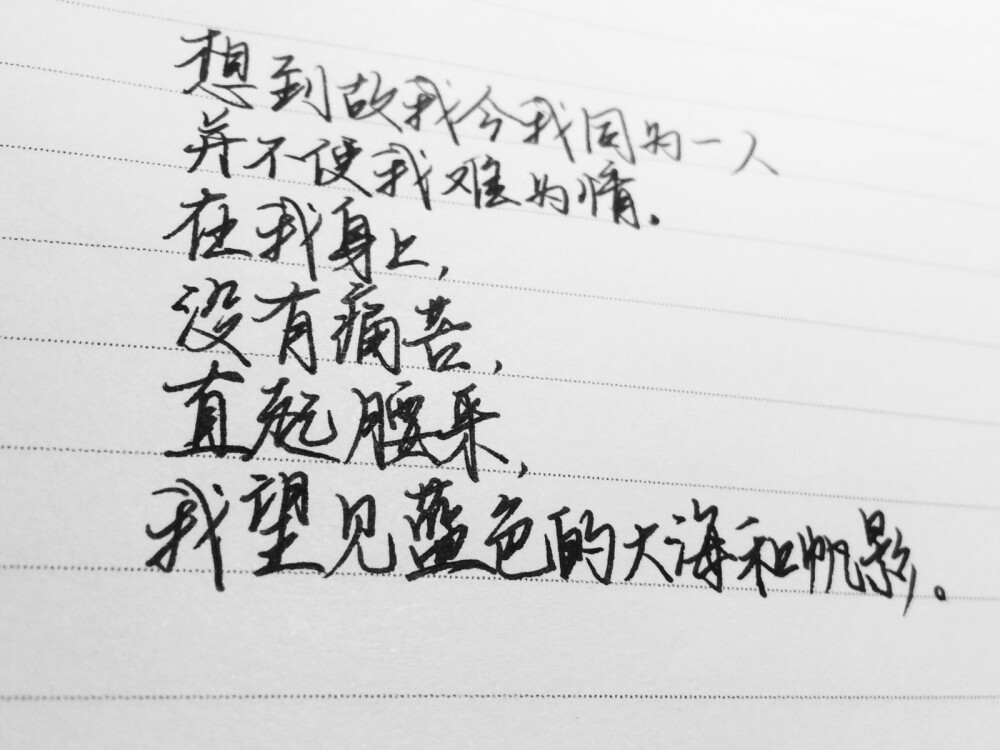 想到故我今我同为一人
并不使我难为情.
在我身上,
没有痛苦,
直起腰来,
我望见蓝色的大海和帆影。